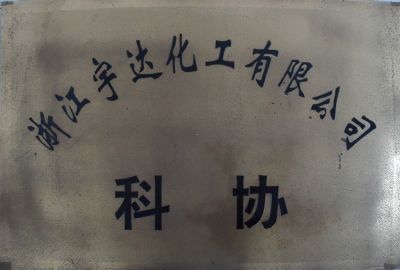 浙江宇达化工有限公司
科协